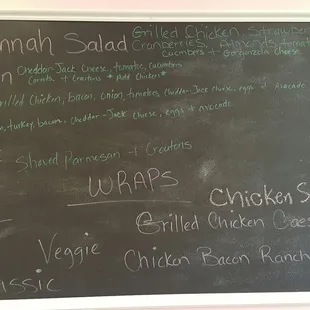 nnah Salad Grilled Chicken, Strawber
Cranberries, Almonds, tomato
Cucumbers + Gorgonzola Cheese
n Cheddar-Jack Cheese, tomatoes, cucumbers
Carrots + Croutons * Add Chicken *
rilled Chicken, bacon, onion, tomatoes, Cheddar-Jack cheese, eggs + Avocado
n, turkey, bacon, Cheddar-Jack Cheese, eggs + Avocado
Shaved Parmesan + Croutons
WRAPS
Chicken S
Grilled Chicken Caes
Veggie
Chicken Bacon Ranch
assic